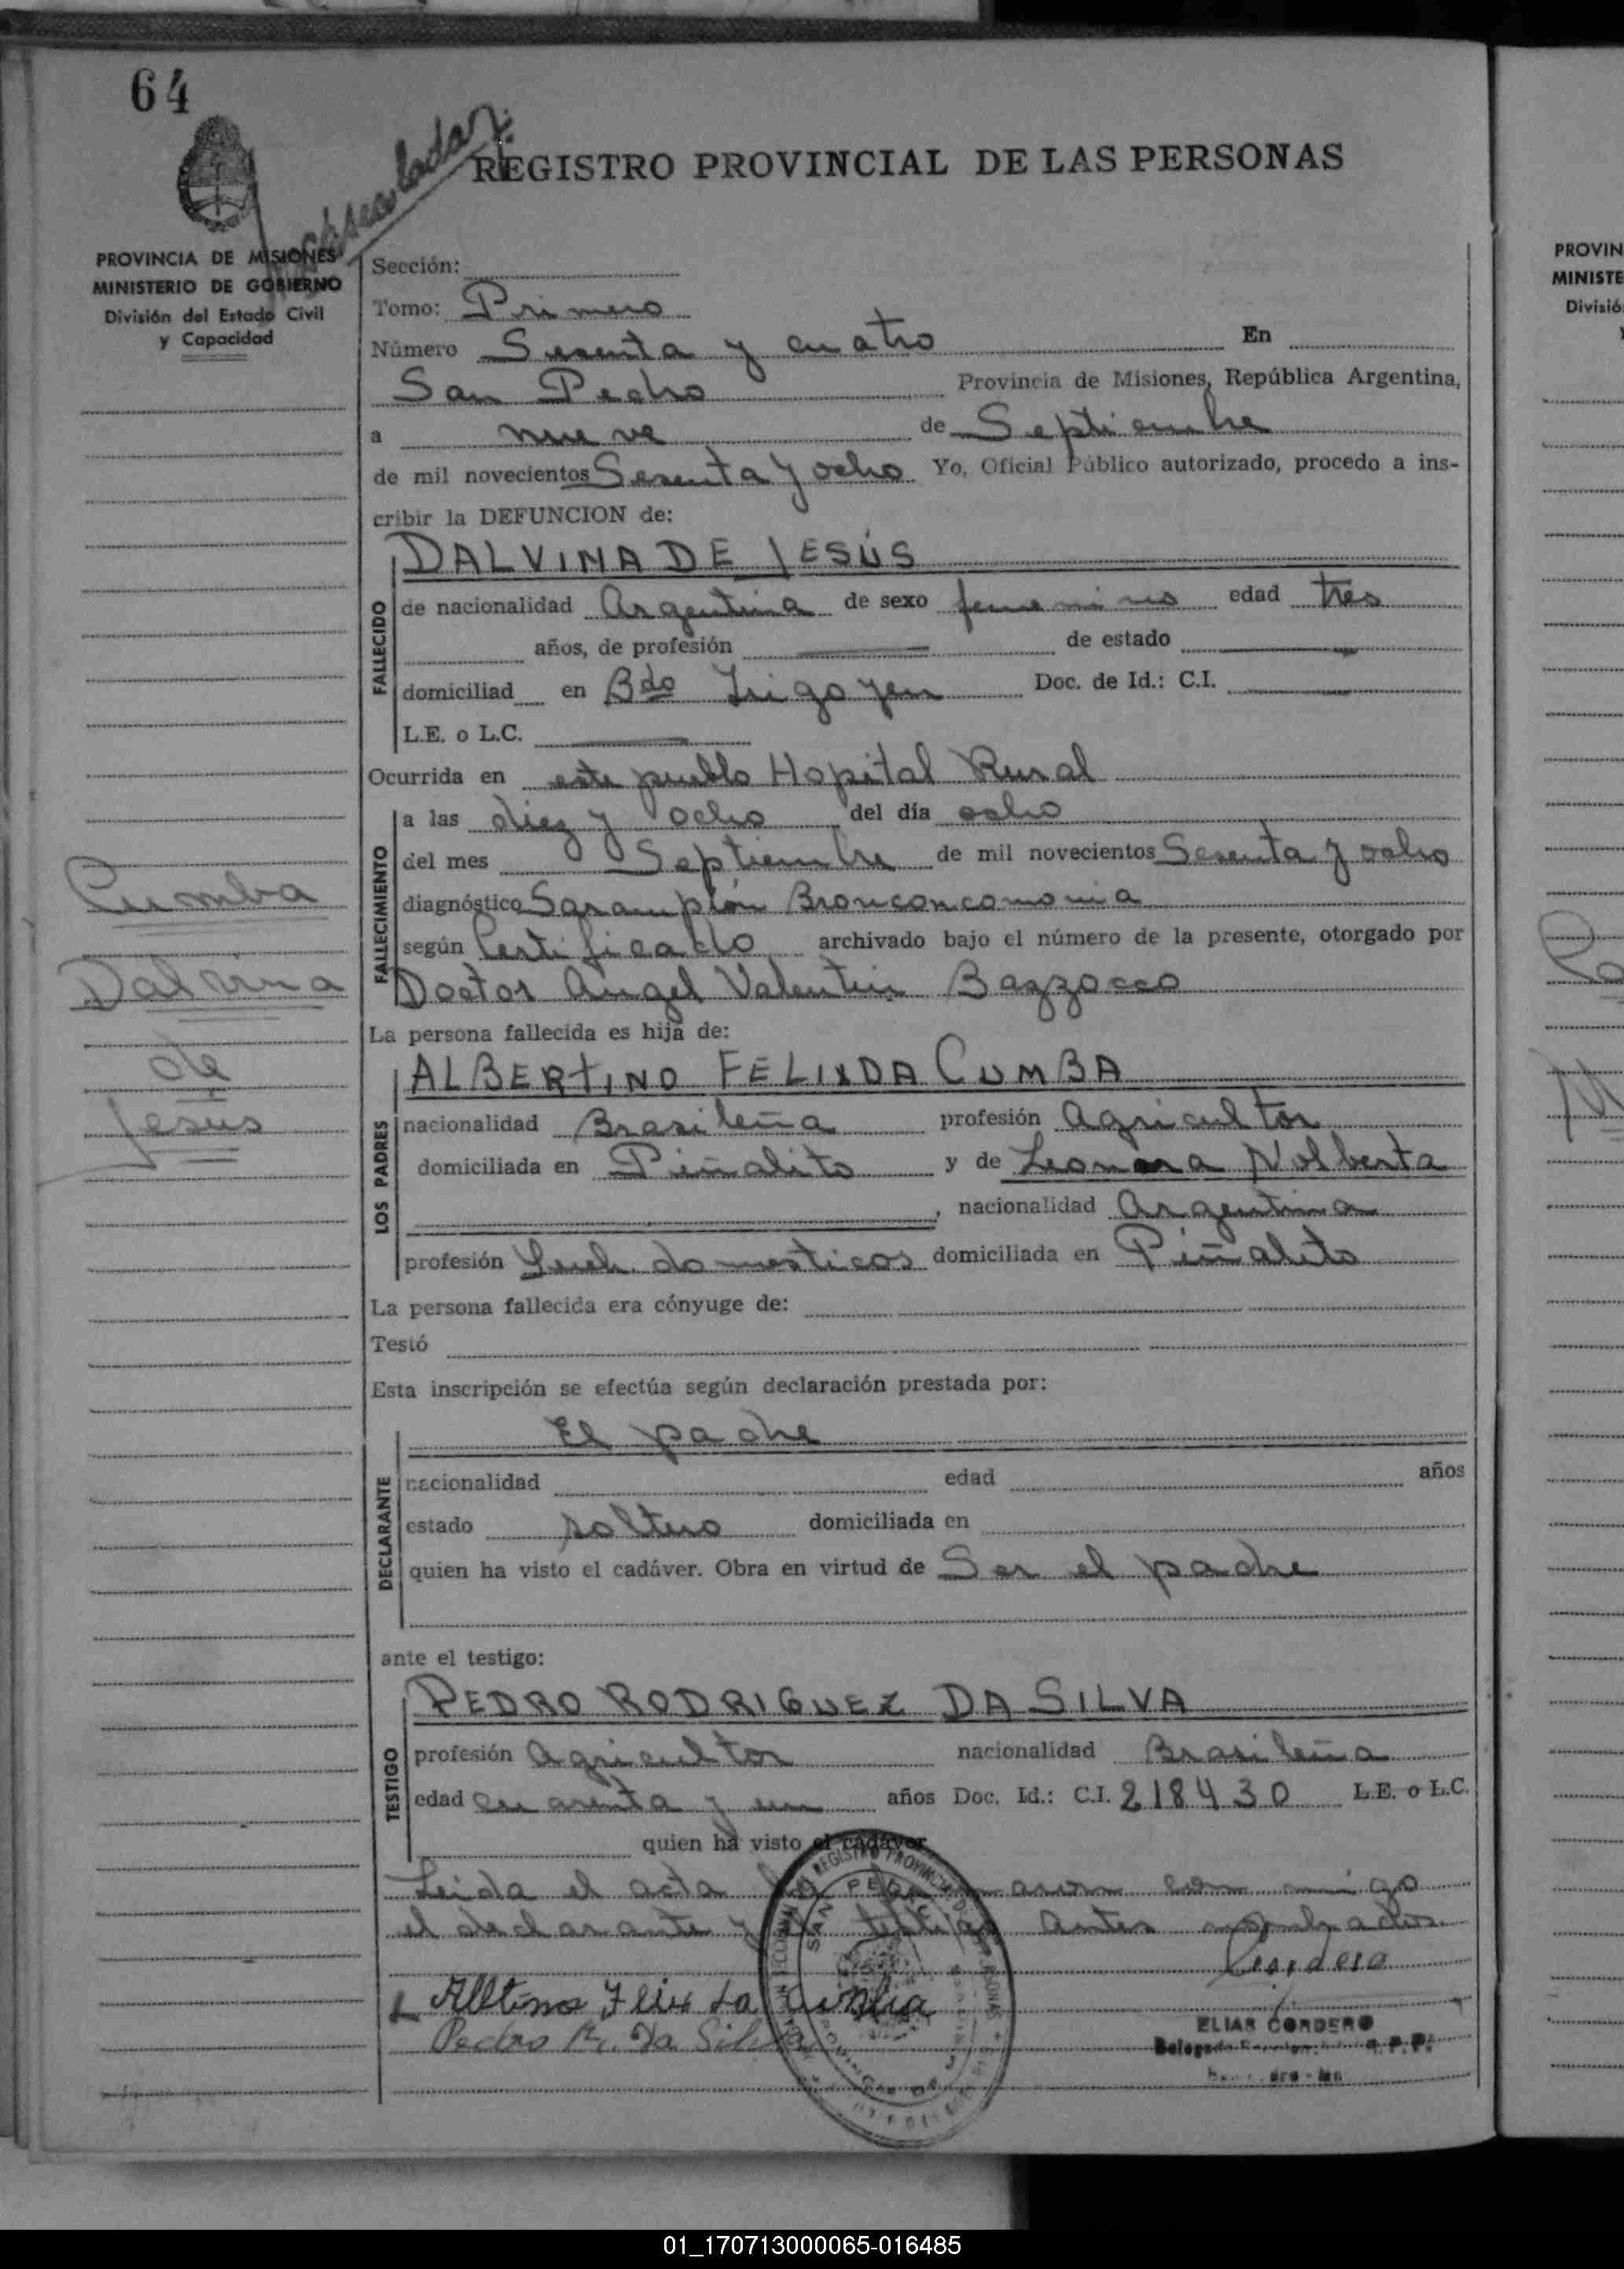 64
REGISTRO PROVINCIAL DE LAS PERSONAS
PROVINCIA DE MISIONES
MINISTERIO DE GOBIERNO
División del Estado Civil
y Capacidad
Sección:
Tomo: Primero
Número Sesenta y cuatro En
San Pedro Provincia de Misiones, República Argentina,
a nueve de Septiembre
de mil novecientos Sesenta y ocho Yo, Oficial Público autorizado, procedo a ins-
cribir la DEFUNCION de:
DALVINA DE JESÚS
FALLECIDO
de nacionalidad Argentina de sexo femenino edad tres
años, de profesión de estado
domiciliad en Bdo Irigoyen Doc. de Id.: C.I.
L.E. o L.C.
Ocurrida en este pueblo Hopital Rural
FALLECIMIENTO
a las diez y ocho del día ocho
del mes Septiembre de mil novecientos Sesenta y ocho
diagnóstico Sarampión
según Certificado archivado bajo el número de la presente, otorgado por
Doctor Angel Valentin Bazzocco
La persona fallecida es hija de:
Cumba
Dalvina
de
Jesús
ALBERTINO FELIXDA CUMBA
LOS PADRES
nacionalidad Brasileña profesión Agricultor
domiciliada en Piñalito y de Nolberta
, nacionalidad Argentina
profesión domesticos domiciliada en Piñalito
La persona fallecida era cónyuge de:
Testó
Esta inscripción se efectúa según declaración prestada por:
El padre
DECLARANTE
nacionalidad edad años
estado soltero domiciliada en
quien ha visto el cadáver. Obra en virtud de Ser el padre
ante el testigo:
PEDRO RODRIGUEZ DA SILVA
TESTIGO
profesión Agricultor nacionalidad Brasileña
edad cuarenta y un años Doc. Id.: C.I. 218430 L.E. o L.C.
quien ha visto el cadáver
Leida el acta la firmaron conmigo
el declarante y el testigo antes nombrados.
Cordero
Pedro R. Da Silva
ELIAS CORDERO
REGISTRO PROVINCIAL DE LAS PERSONAS
SAN PEDRO
PROVIN
MINISTE
Divisió
01_170713000065-016485